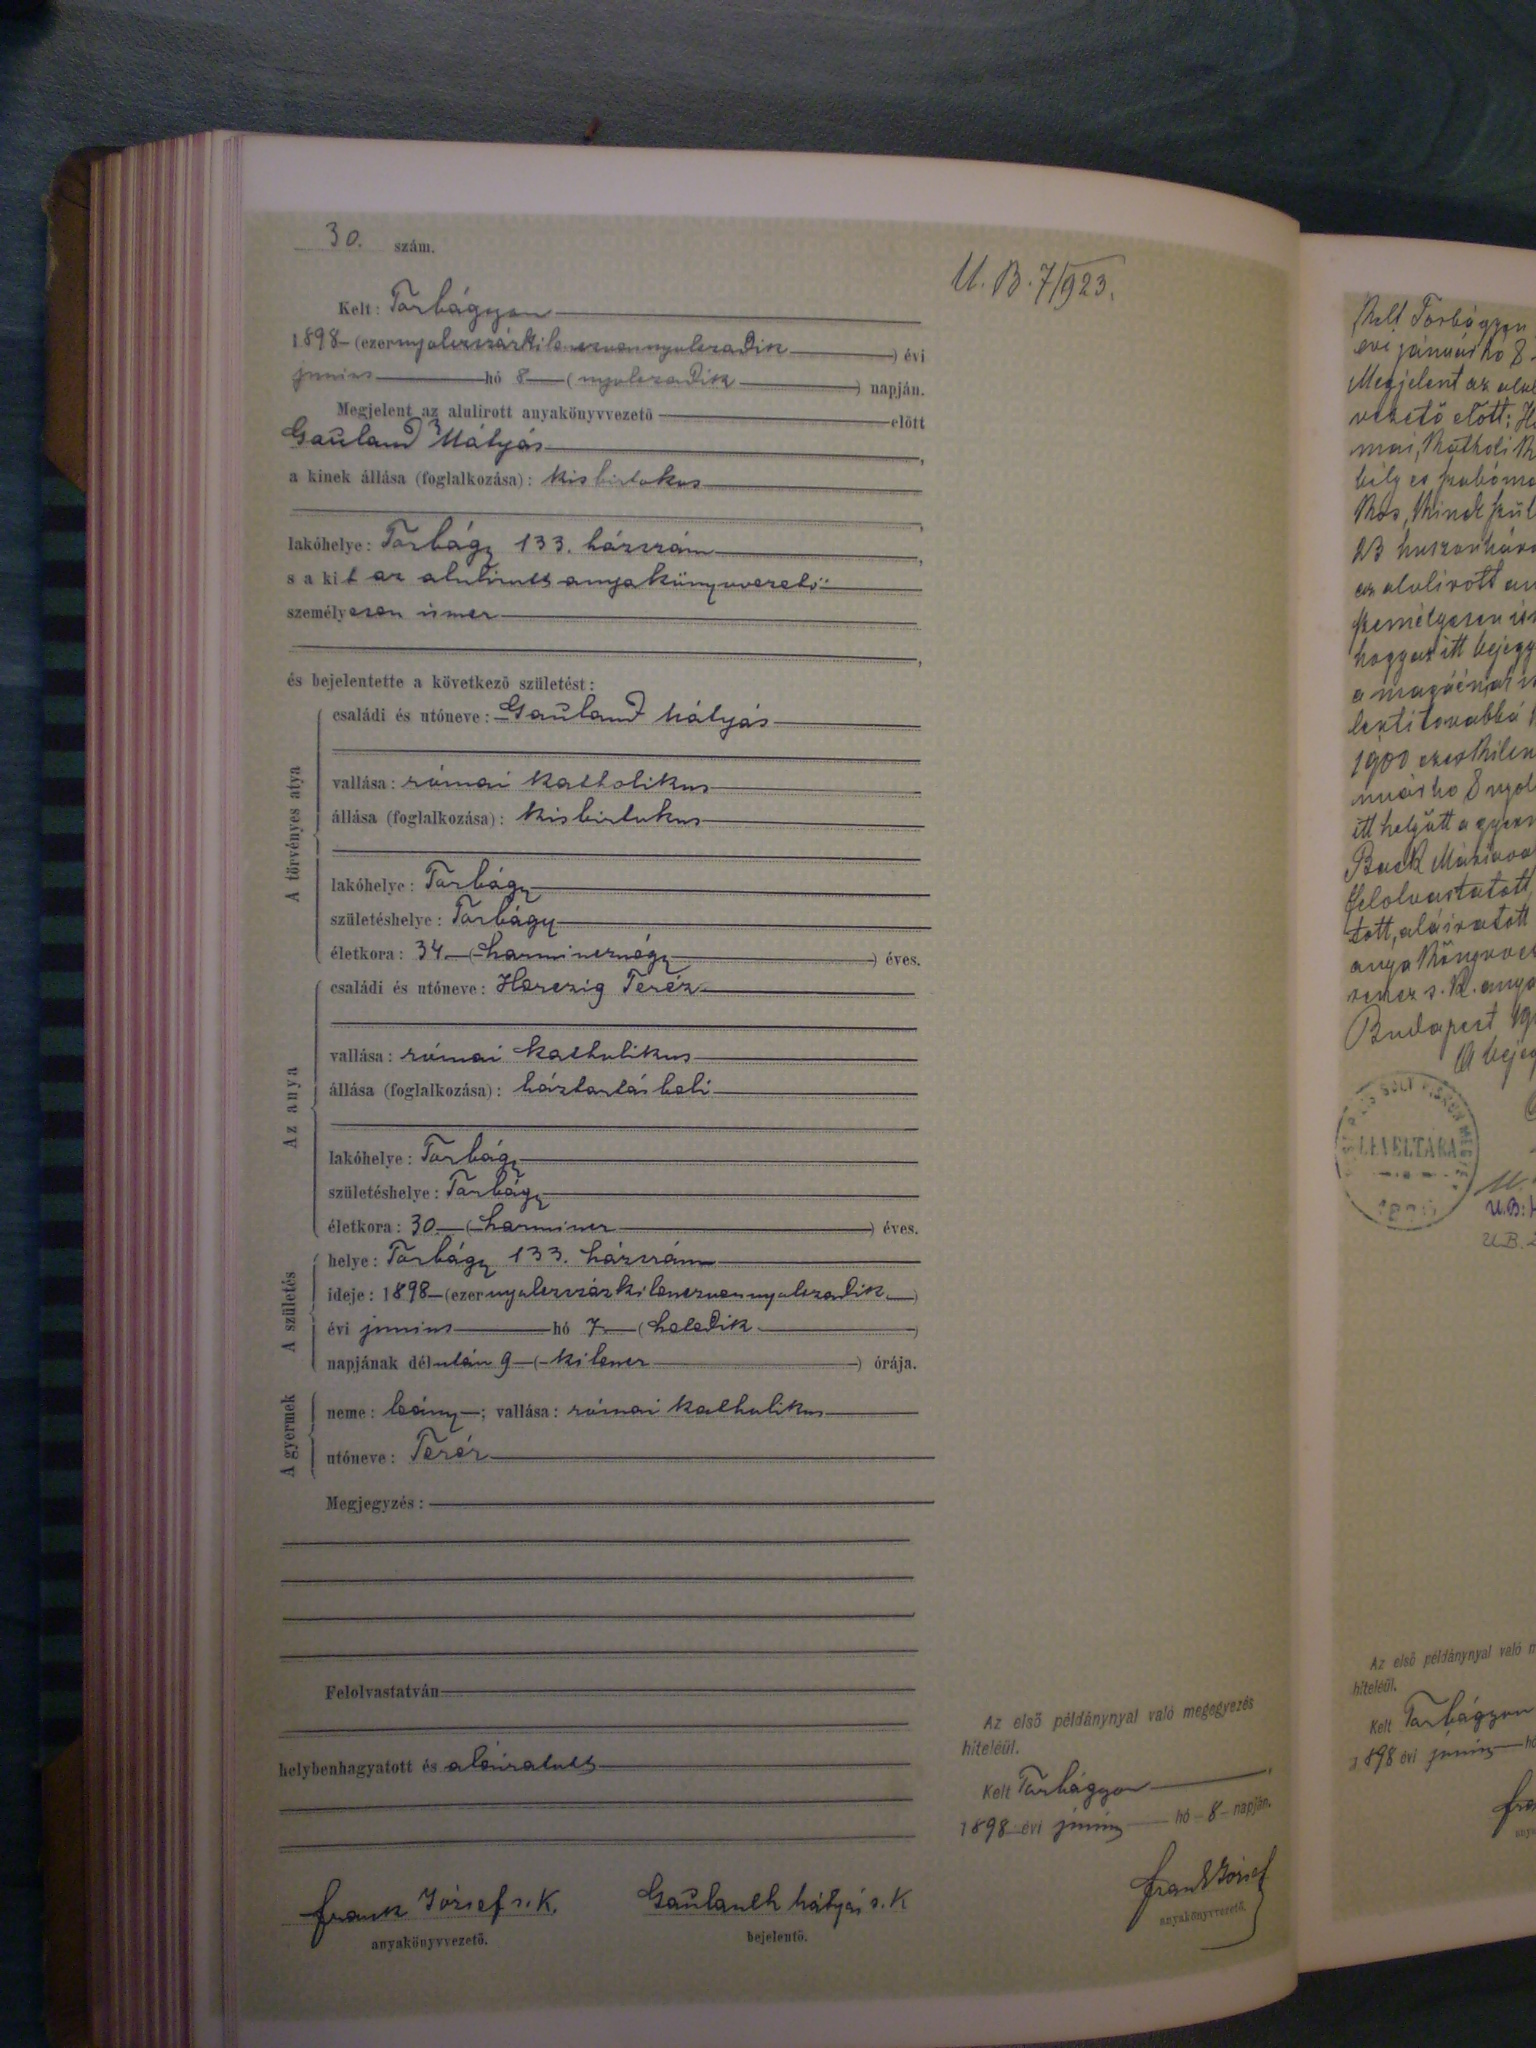 30. szám.
U. B. 7/923.
Kelt: Torbágyon
1898 (ezernyolczszázkilenczvennyolczadik) évi
junius hó 8 (nyolczadik) napján.
Megjelent az alulirott anyakönyvvezető előtt
Gauland Mátyás,
a kinek állása (foglalkozása): kisbirtokos
,
lakóhelye: Torbágy 133. házszám,
s a kit az alulirott anyakönyvvezető
személyesen ismer
,
és bejelentette a következő születést:
A törvényes atya
családi és utóneve: Gauland Mátyás
vallása: római katholikus
állása (foglalkozása): kisbirtokos
lakóhelye: Torbágy
születéshelye: Torbágy
életkora: 34 (harmincznégy) éves.
Az anya
családi és utóneve: Herczig Teréz
vallása: római katholikus
állása (foglalkozása): háztartásbeli
lakóhelye: Torbágy
születéshelye: Torbágy
életkora: 30 (harmincz) éves.
A születés
helye: Torbágy 133. házszám
ideje: 1898 (ezernyolczszázkilenczvennyolczadik)
évi junius hó 7 (hetedik)
napjának délután 9 (kilencz) órája.
A gyermek
neme: leány; vallása: római katholikus
utóneve: Teréz
Megjegyzés:
Felolvastatván
helybenhagyatott és aláiratott
Frank József s. k.
anyakönyvvezető.
Gaulandh Mátyás s. k
bejelentő.
Az első példánynyal való megegyezés
hiteléül.
Kelt Torbágyon,
1898 évi junius hó 8 napján.
Frank József
anyakönyvvezető.
Kelt Torbágyon
évi január hó 8
Megjelent az alul
vezető előtt: H
mai, katholik
bély es szabóma
kos, kinek szül
23 huszonháro
az alulirott an
személyesen is
hogy az itt bejegy
a magáénak i
lenti továbbá
1900 ezerkilen
nuár hó 8 nyol
itt helyütt a gyerm
Back Máriával
Felolvastatott,
tott, aláiratott
anyakönyvvez
s. k. anya
Budapest 19
A bejeg
SOLT KISKUN
LEVÉLTÁRA
1876
U.B.
U.B.
Az első példánynyal való m
hiteléül.
Kelt Torbágyon
1898 évi junius hó
Fra
anya